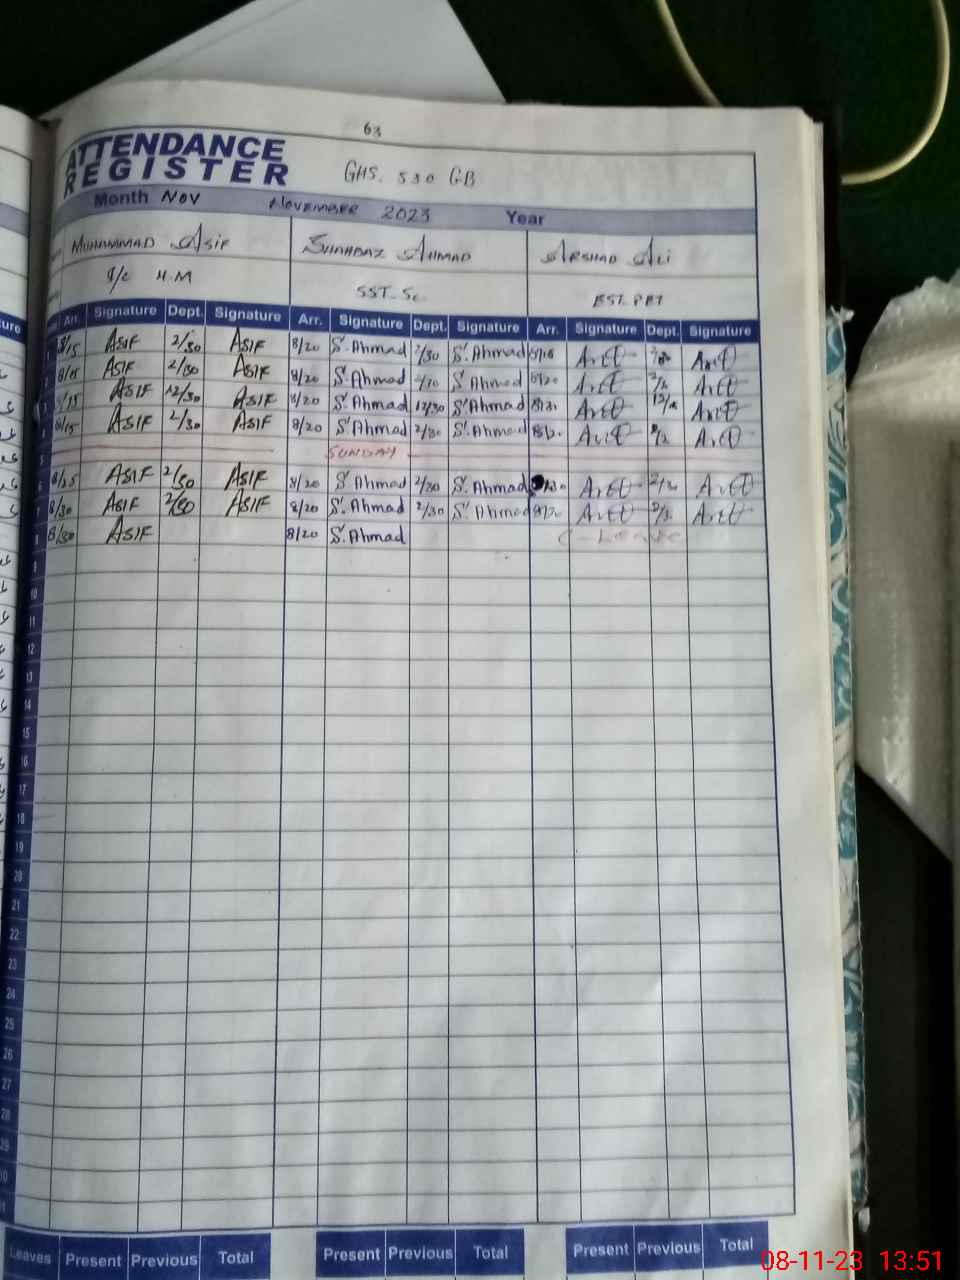 63
ATTENDANCE
REGISTER
GHS. 530 GB
Month Nov November 2023 Year
Muhammad Asif Shahbaz Ahmad Arshad Ali
I/C H.M SST-Sc EST. PET
Arr. Signature Dept. Signature Arr. Signature Dept. Signature Arr. Signature Dept. Signature
1 8/15 Asif 2/30 Asif 8/20 S.Ahmad 2/30 S.Ahmad
2 8/15 Asif 2/30 Asif 8/20 S.Ahmad S.Ahmad 8/20
3 8/15 Asif 12/30 Asif 8/20 S.Ahmad 12/30 S.Ahmad 8/20
4 8/15 Asif 2/30 Asif 8/20 S.Ahmad 2/30 S.Ahmad
5 SUNDAY
6 8/25 Asif 2/30 Asif 8/20 S.Ahmad 2/30 S.Ahmad
7 8/30 Asif 2/30 Asif 8/20 S.Ahmad 2/30 S.Ahmad
8 8/30 Asif 8/20 S.Ahmad C-Leave
9
10
11
12
13
14
15
16
17
18
19
20
21
22
23
24
25
26
27
28
29
Leaves Present Previous Total Present Previous Total Present Previous Total
08-11-23 13:51